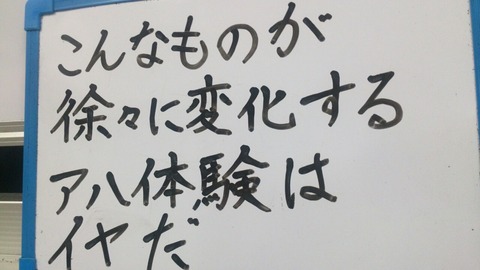 こんなものが
徐々に変化する
アハ体験は
イヤだ